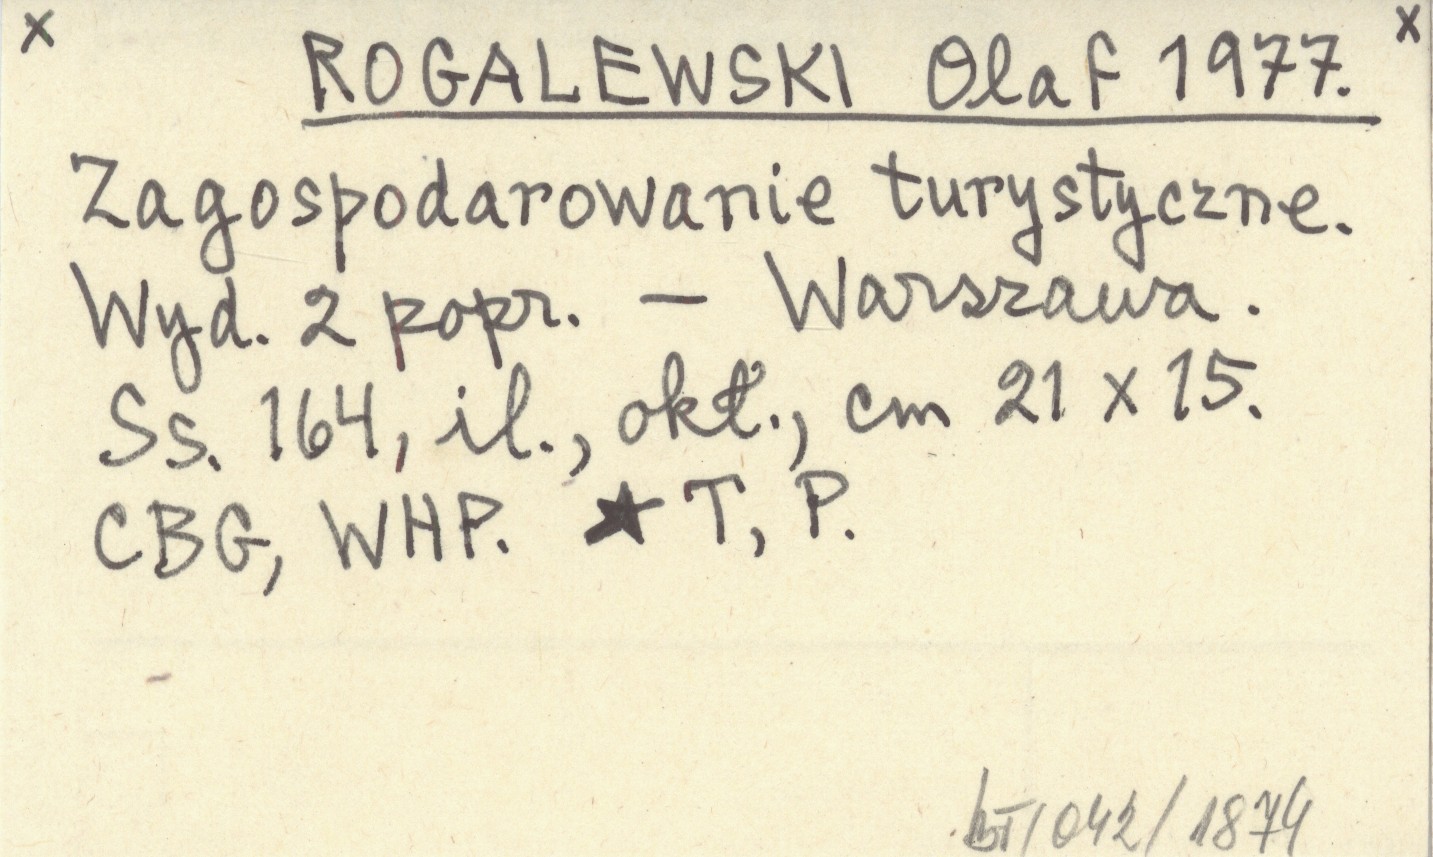 x ROGALEWSKI Olaf 1977. x
Zagospodarowanie turystyczne.
Wyd. 2 popr. — Warszawa.
Ss. 164, il., okł., cm 21 x 15.
CBG, WHP. ★ T, P.
/042/1874